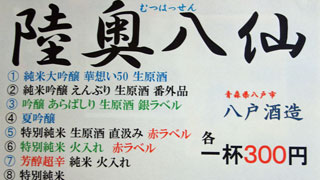 むつはっせん
陸奥八仙
① 純米大吟醸 華想い50 生原酒
② 純米吟醸 えんぶり 生原酒 番外品
③ 吟醸 あらばしり 生原酒 銀ラベル
④ 夏吟醸
⑤ 特別純米 生原酒 直汲み 赤ラベル
⑥ 特別純米 火入れ 赤ラベル
⑦ 芳醇超辛 純米 火入れ
⑧ 特別純米 火入れ
青森県八戸市
八戸酒造
各
一杯300円